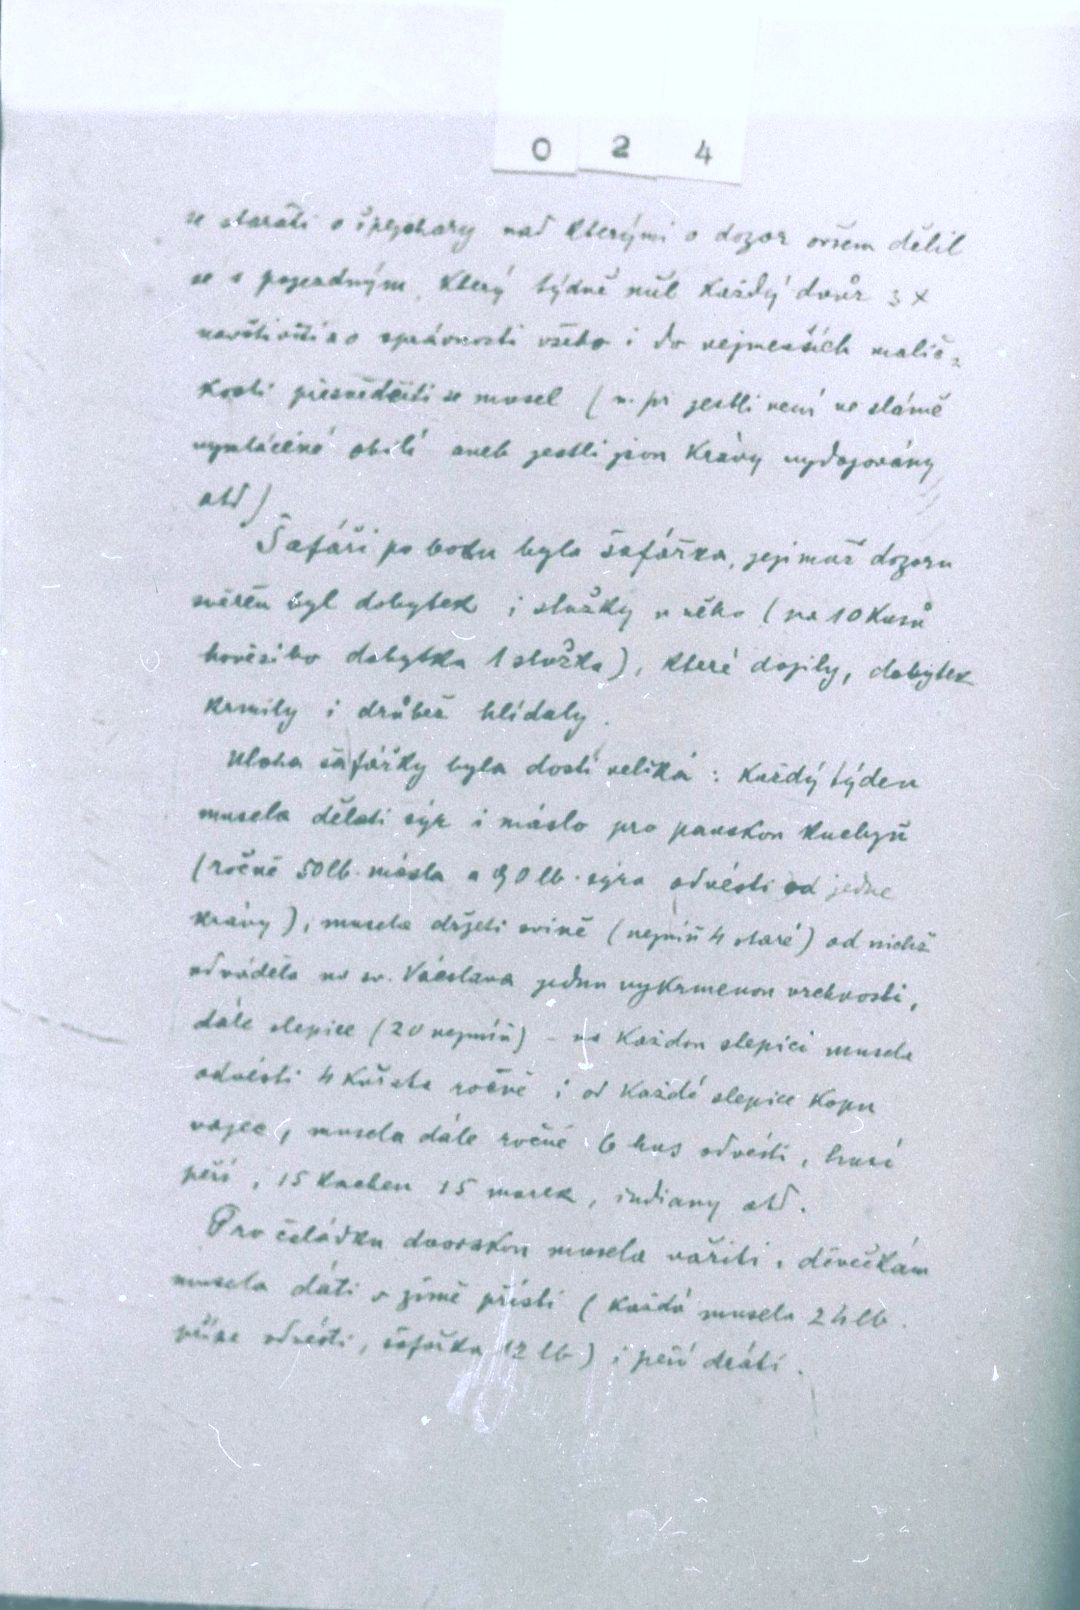 0 2 4
se starati o špejchary nad kterými o dozor ovšem dělil
se s pojezdným, který týdně měl každý dvůr 3 x
navštíviti a o správnosti všeho i do nejmenších malič-
kostí přesvědčiti se musel (n. př. jestli není ve slámě
vymlácené obilí aneb jestli jsou krávy vydojovány
atd)
Šafáři po boku byla šafářka, jejímuž dozoru
svěřen byl dobytek i služky u něho (na 10 kusů
hovězího dobytka 1 služka), které dojily, dobytek
krmily i drůbež hlídaly.
Uloha šafářky byla dosti veliká: Každý týden
musela dělati sýr i máslo pro panskou kuchyň
(ročně 50 lb. másla a 90 lb. sýra odvésti od jedné
krávy), musela držeti svině (nejmíň 4 staré) od nichž
odváděla na sv. Václava jednu vykrmenou vrchnosti,
dále slepice (20 nejmíň) - na každou slepici musela
odvésti 4 kuřata ročně i od každé slepice kopu
vajec, musela dále ročně 6 hus odvésti, husí
peří, 15 kachen 15 morek, indiany atd.
Pro čeládku dvorskou musela vařiti, děvečkám
musela dáti v zimě přísti (každá musela 24 lb.
příze odvésti, šafářka 12 lb.) i peří dráti.